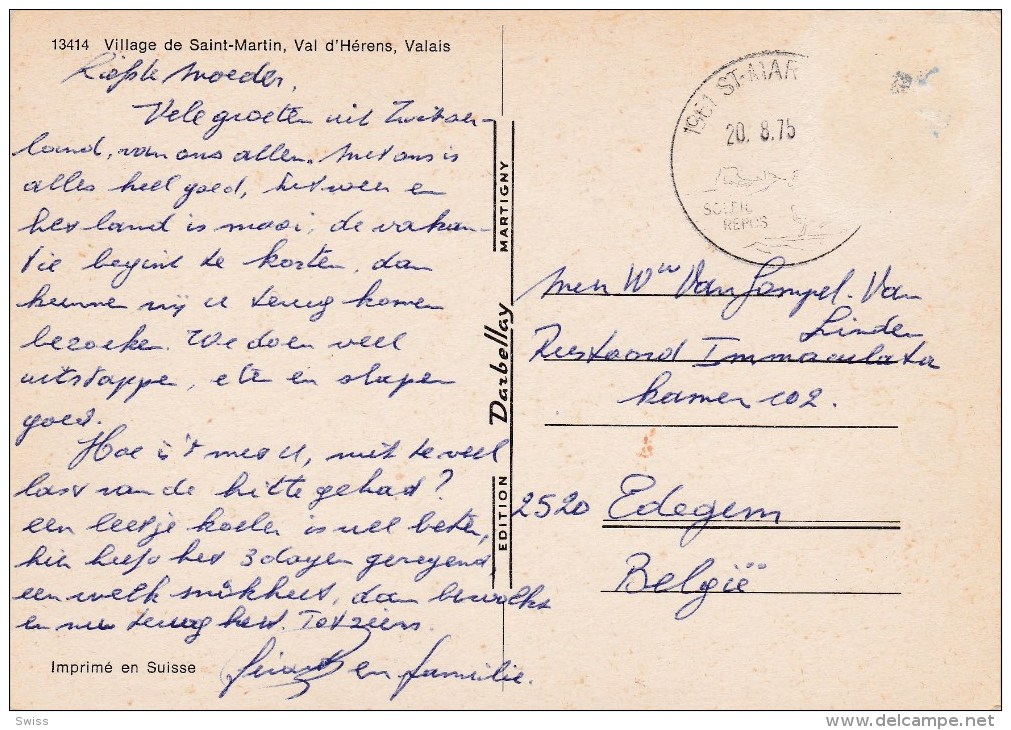 13414 Village de Saint-Martin, Val d'Hérens, Valais
Liefste Moeder,
Vele groeten uit Zwitser-
land, van ons allen. Met ons is
alles heel goed, het weer en
het land is mooi, de vakan-
tie begint te korten, dan
kunnen wij u terug komen
bezoeken. We doen veel
uitstappen, eten en slapen
goed.
Hoe is 't met u, niet te veel
last van de hitte gehad?
een beetje koeler is wel beter,
hier heeft het 3 dagen geregend,
een dan bewolkt
en nu terug heet. Tot ziens.
en familie.
Imprimé en Suisse
EDITION Darbellay MARTIGNY
1961 ST-MAR
20. 8.75
SOLEIL
REPOS
Mevr Wwe Van Gompel-Van
Linden
Rustoord Immaculata
kamer 102.
2520 Edegem
België
Swiss
delcampe.net